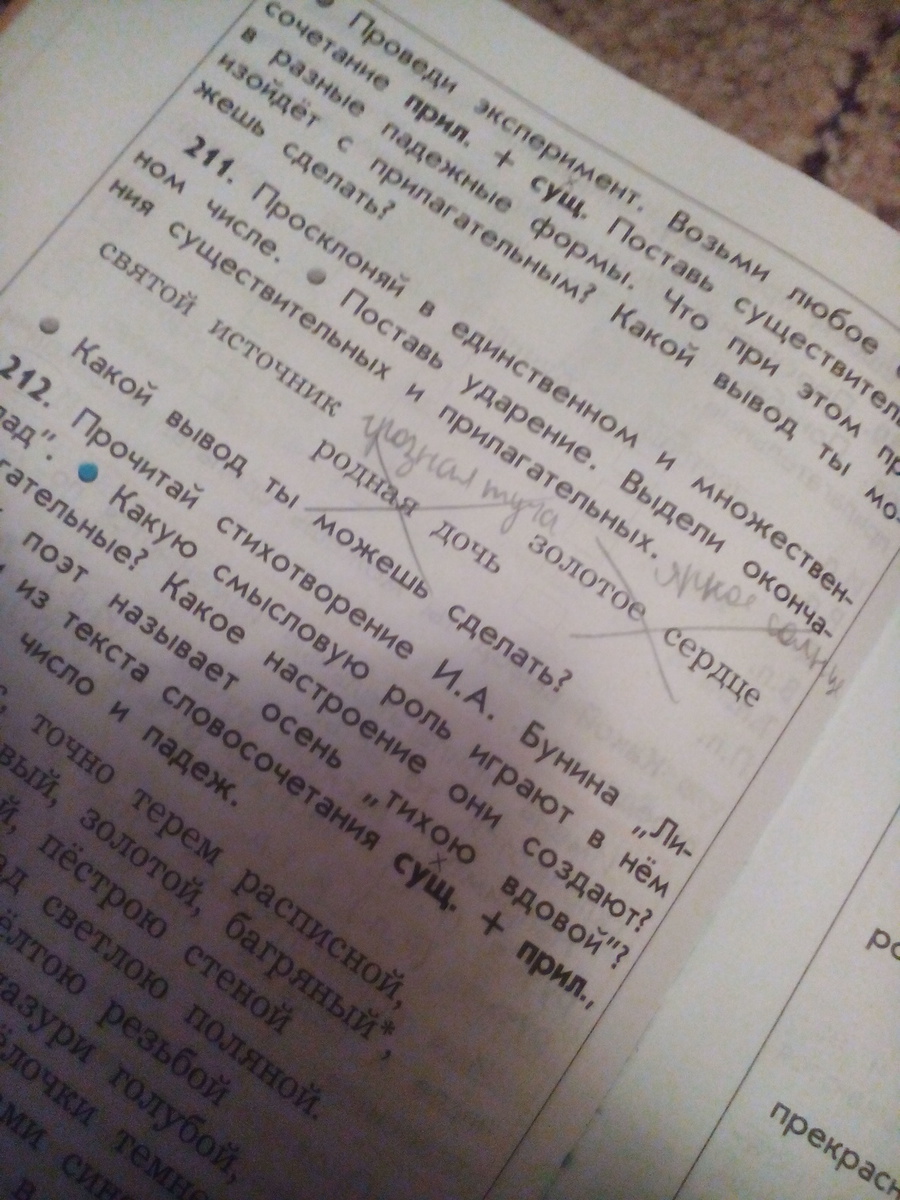 Проведи эксперимент. Возьми любое
сочетание прил. + сущ. Поставь существитель
в разные падежные формы. Что при этом пр
изойдёт с прилагательным? Какой вывод ты мо-
жешь сделать?
211. Просклоняй в единственном и множествен-
ном числе. Поставь ударение. Выдели оконча-
ния существительных и прилагательных.
грозная туча яркое
святой источник родная дочь золотое сердце
Какой вывод ты можешь сделать?
212. Прочитай стихотворение И.А. Бунина „Ли-
пад". Какую смысловую роль играют в нём
гательные? Какое настроение они создают?
поэт называет осень „тихою вдовой"?
из текста словосочетания сущ. + прил.,
число и падеж.
точно терем расписной,
вый, золотой, багряный*,
й, пёстрою стеной
ад светлою поляной.
ёлтою резьбой
азури голубой,
ёлочки темне
ми син
в
ро
прекрасн